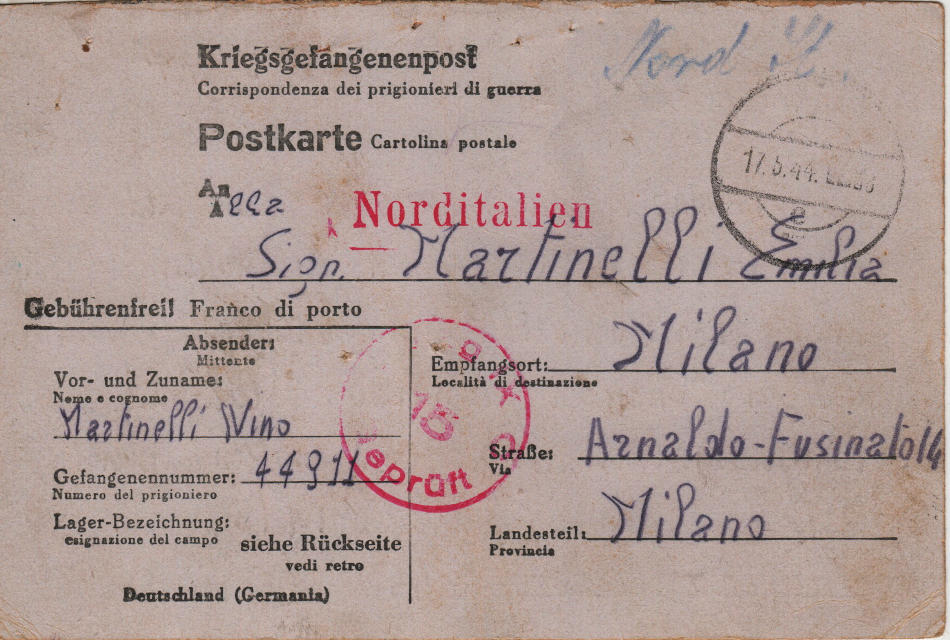 Kriegsgefangenenpost
Nord It.
Corrispondenza dei prigionieri di guerra
Postkarte Cartolina postale
17.5.44.
An
A lla
Norditalien
Sign. Martinelli Emilia
Gebührenfrei! Franco di porto
Absender:
Mittente
Vor- und Zuname:
Nome e cognome
Martinelli Nino
Gefangenennummer: 44911
Numero del prigioniero
Lager-Bezeichnung:
esignazione del campo
siehe Rückseite
vedi retro
Deutschland (Germania)
15
Geprüft
Empfangsort: Milano
Località di destinazione
Straße: Arnaldo-Fusinato 14
Via
Landesteil: Milano
Provincia